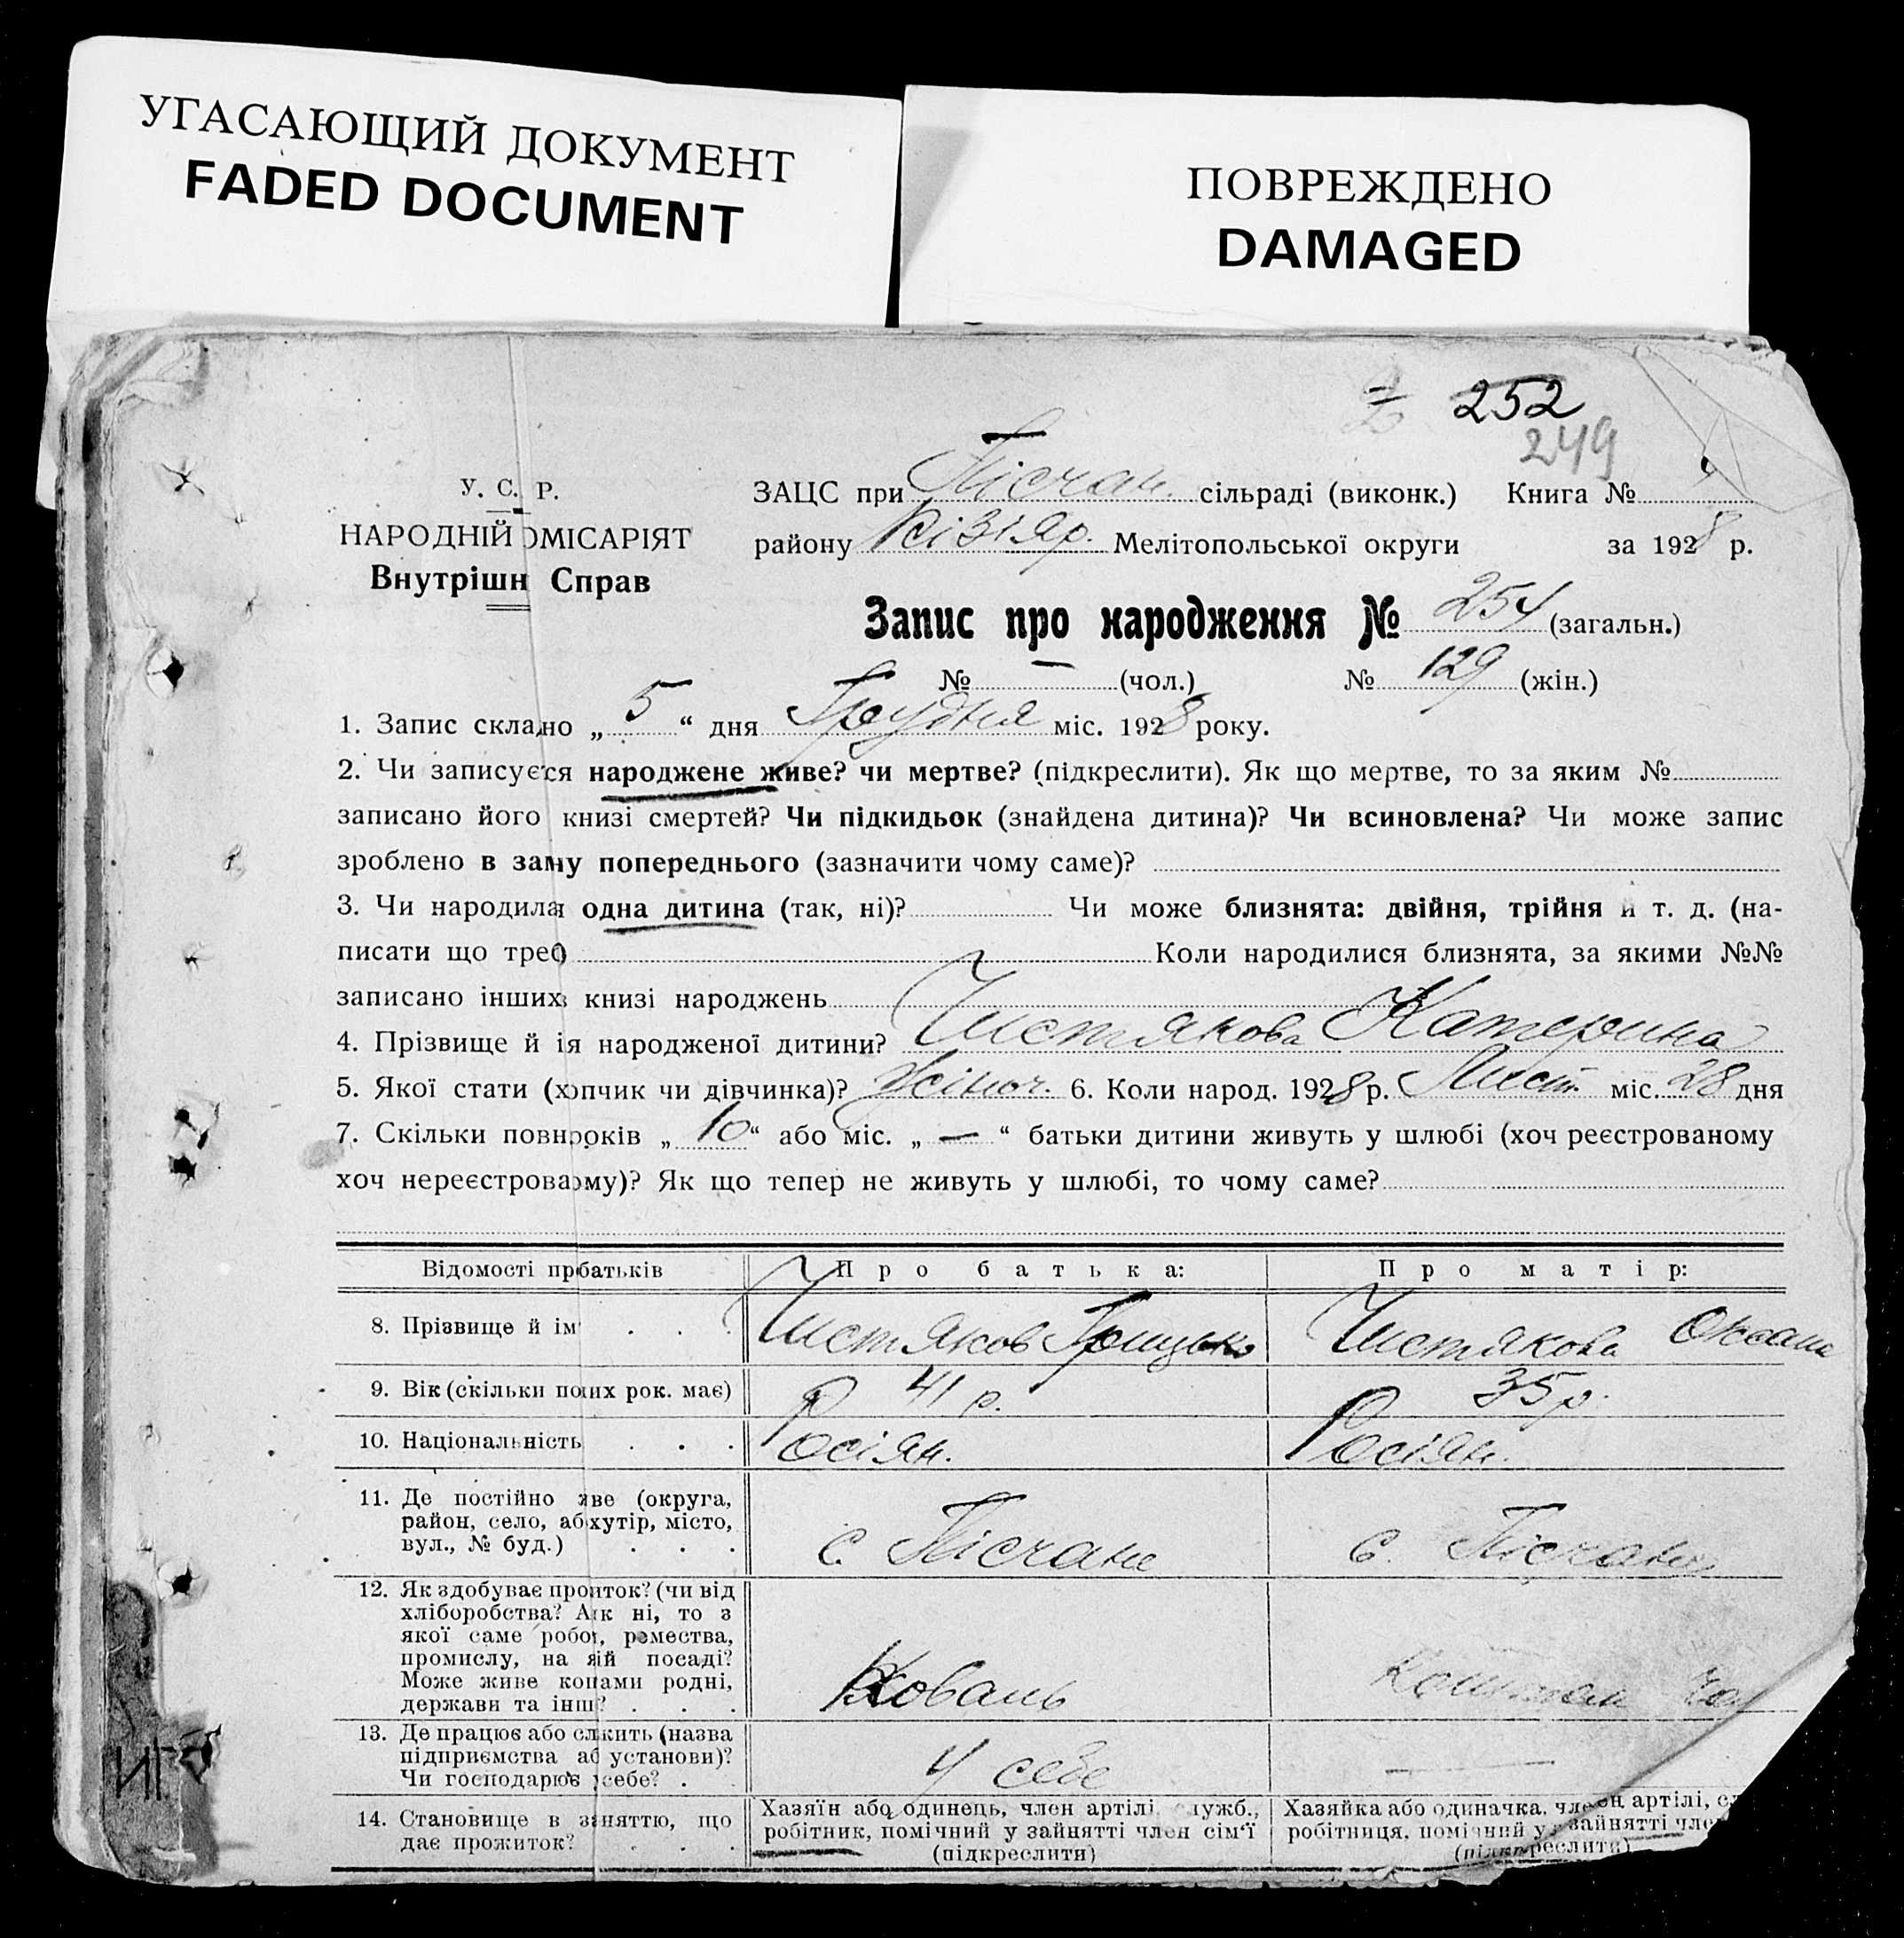 УГАСАЮЩИЙ ДОКУМЕНТ
FADED DOCUMENT
ПОВРЕЖДЕНО
DAMAGED
252
249
У. С. Р.
НАРОДНІЙ ОМІСАРІЯТ
Внутрішн Справ
ЗАЦС при Пісчан. сільраді (виконк.) Книга №
району Кізіяр. Мелітопольської округи за 1928 р.
Запис про народження № 254 (загальн.)
№ — (чол.) № 129 (жін.)
1. Запис складно „ 5 “ дня Грудня міс. 1928 року.
2. Чи записуєтся народжене живе? чи мертве? (підкреслити). Як що мертве, то за яким №
записано його книзі смертей? Чи підкидьок (знайдена дитина)? Чи всиновлена? Чи може запис
зроблено в заму попереднього (зазначити чому саме)?
3. Чи народила одна дитина (так, ні)? Чи може близнята: двійня, трійня й т. д. (на-
писати що треб Коли народилися близнята, за якими №№
записано інших книзі народжень
4. Прізвище й ія народженої дитини? Чистякова Катерина
5. Якої стати (хопчик чи дівчинка)? жіноч. 6. Коли народ. 1928 р. Лист. міс. 28 дня
7. Скільки повн років „ 10 “ або міс. „ — “ батьки дитини живуть у шлюбі (хоч реєстрованому
хоч нереєстрова ому)? Як що тепер не живуть у шлюбі, то чому саме?
Відомості пр батьків Про батька: Про матір:
8. Прізвище й ім Чистяков Грицько Чистякова Оксана
9. Вік (скільки по их рок. має) 41 р. 35 р.
10. Національність Росіян. Росіян.
11. Де постійно иве (округа,
район, село, аб хутір, місто,
вул., № буд.)
с. Пісчане с. Пісчане
12. Як здобуває про иток? (чи від
хліборобства? А к ні, то з
якої саме робо , ремества,
промислу, на яій посаді?
Може живе ко ами родні,
держави та інш?
Коваль
13. Де працює або сл жить (назва
підприємства аб установи)?
Чи господарює себе?
У себе —
14. Становище в з няттю, що
дає прожиток?
Хазяїн або одинець, член артілі, служб.,
робітник, помічний у зайнятті член сім'ї
(підкреслити)
Хазяйка або одиначка, член артілі, сл
робітниця, помічний у зайнятті чле
(підкреслити)